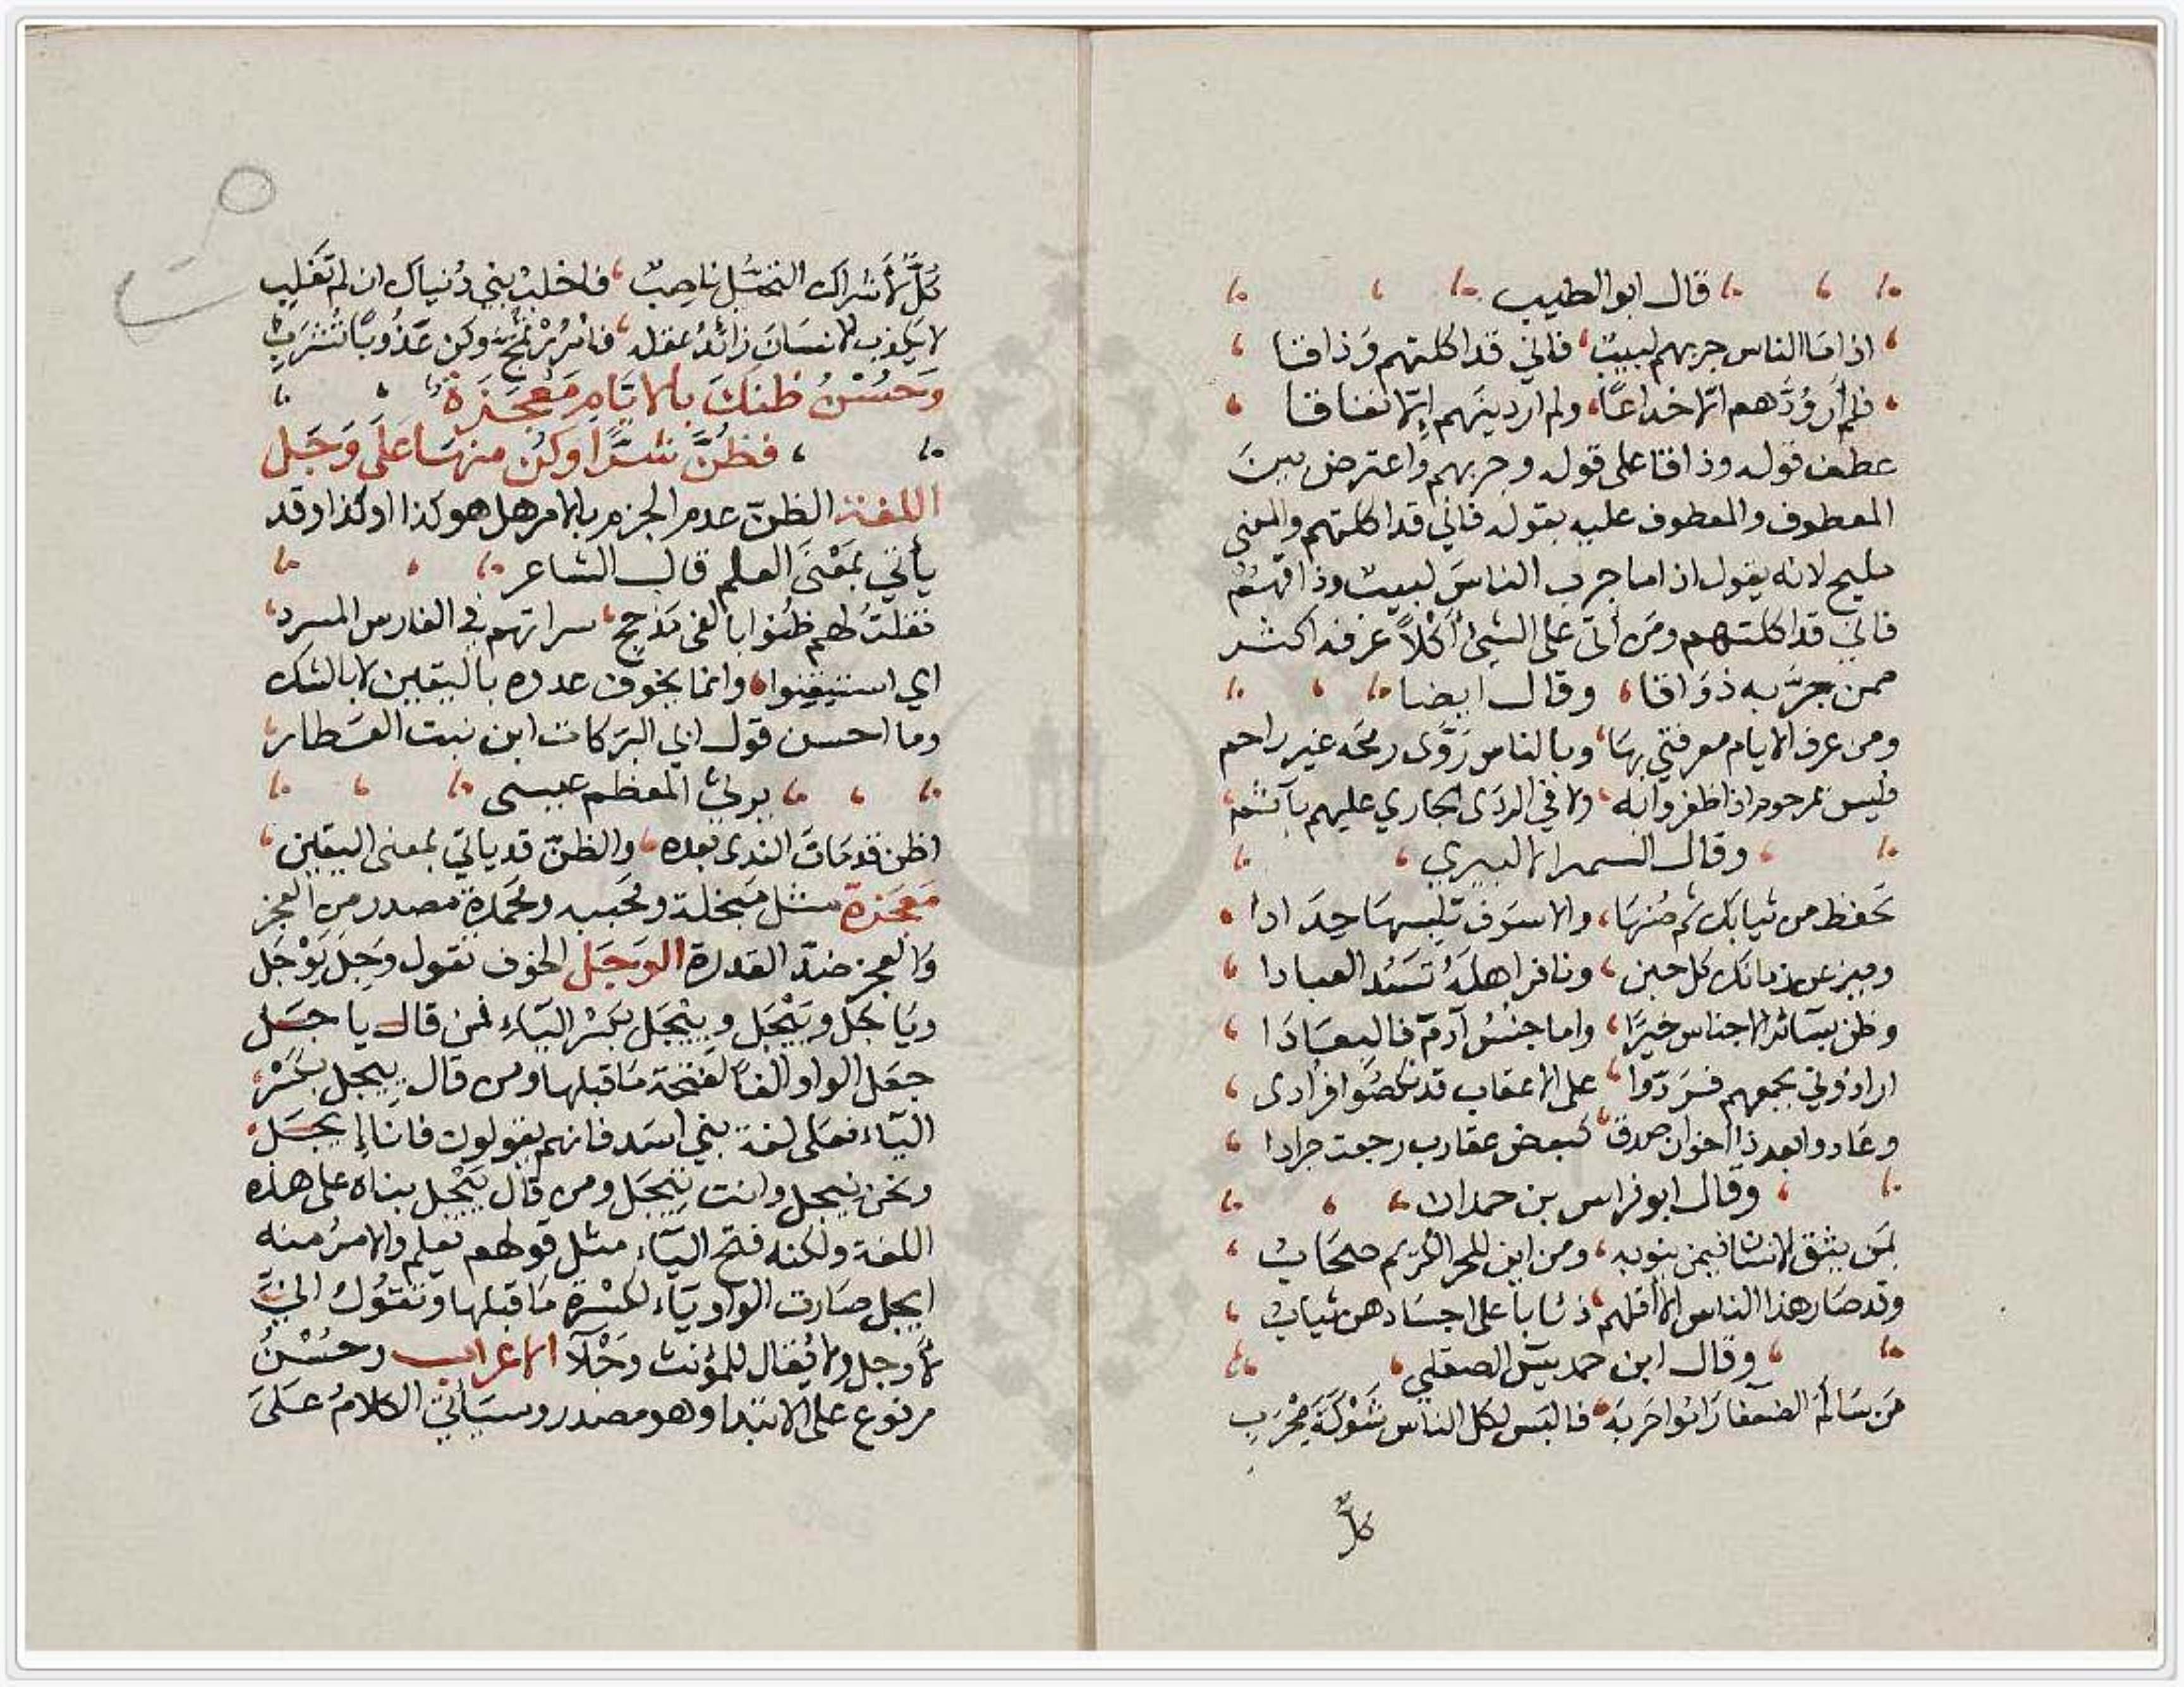 قال ابو الطيب
اذا ما الناس جربهم لبيب فاني قد اكلتهم وذاقا
فلم أر ودهم الا خداعا ولم ار دينهم إلا نفاقا
عطف قوله وذاقا على قوله وجربهم واعترض بين
المعطوف والمعطوف عليه بقوله فاني قد اكلتهم والمعنى
مليح لانه يقول اذا ما جرب الناس لبيب وذاقهم
فاني قد اكلتهم ومن أتى على الشيء أكلاً عرفه اكثر
ممن جربه ذواقا وقال ايضا
ومن عرف الايام معرفتي بها وبالناس روى رمحه غير راحم
فليس بمرحوم اذا ظفروا به ولا في الردى الجاري عليهم بآثم
وقال السميرالالبيري
تحفظ من ثيابك ثم صنها والا سوف تلبسها حدادا
وميز عن زمانك كل حين ونافر اهله تسد العبادا
وظن بسائر الاجناس خيرًا واما جنس آدم فالبعادا
ارادوني بجمعهم فردوا على الاعقاب قد نكصوا فرادى
وعادوا بعد ذا اخوان صدق كبعض عقارب رجعت جرادا
وقال ابو فراس بن حمدان
بمن يثق الانسان فيمن ينوبه ومن اين للحر الكريم صحاب
وقد صار هذا الناس الا أقلهم ذئابا على اجسادهن ثياب
وقال ابن حمديس الصقلي
من سالم الضعفا راموا حربه فالبس لكل الناس شوكة محرب
كلٌّ
كلٌّ لأشراك التحيل ناصب فاخلب بني دنياك ان لم تغلب
لا يكذب الانسان رائد عقله فامرر تمج وكن عذوبًا تشرب
وحسن ظنك بالايام معجزة
فظن شرًا وكن منها على وجل
اللغة الظن عدم الجزم بالامر هل هو كذا او كذا وقد
يأتي بمعنى العلم قال الشاعر
فقلت لهم ظنوا بالفى مذحج سراتهم في الفارس المسرد
اي استيقنوا وانما يخوف عدوه باليقين لا بالشك
وما احسن قول ابي البركات ابن نبت العطار
يرثي المعظم عيسى
اظن قد مات الندى بعده والظن قد ياتي بمعنى اليقين
معجزة مثل مبخلة ومحببه ومحمدة مصدر من العجز
والعجز ضد القدرة الوجل الخوف تقول وجل يوجل
وياجل وييجل وييجل بكسر الياء فمن قال ياجل
جعل الواو الفاً لفتحة ما قبلها ومن قال ييجل بكسر
الياء فعلى لغة بني اسد فانهم يقولون فانا إيجل
ونحن نيجل وانت تيجل ومن قال ييجل بناه على هذه
اللغة ولكنه فتح الياء مثل قولهم يعلم والامر منه
ايجل صارت الواو ياء لكسرة ما قبلها وتقول اني
لأوجل ولا يقال للمؤنث وجلآ الاعراب وحسن
مرفوع على الابتدا وهو مصدر وسيأتي الكلام على